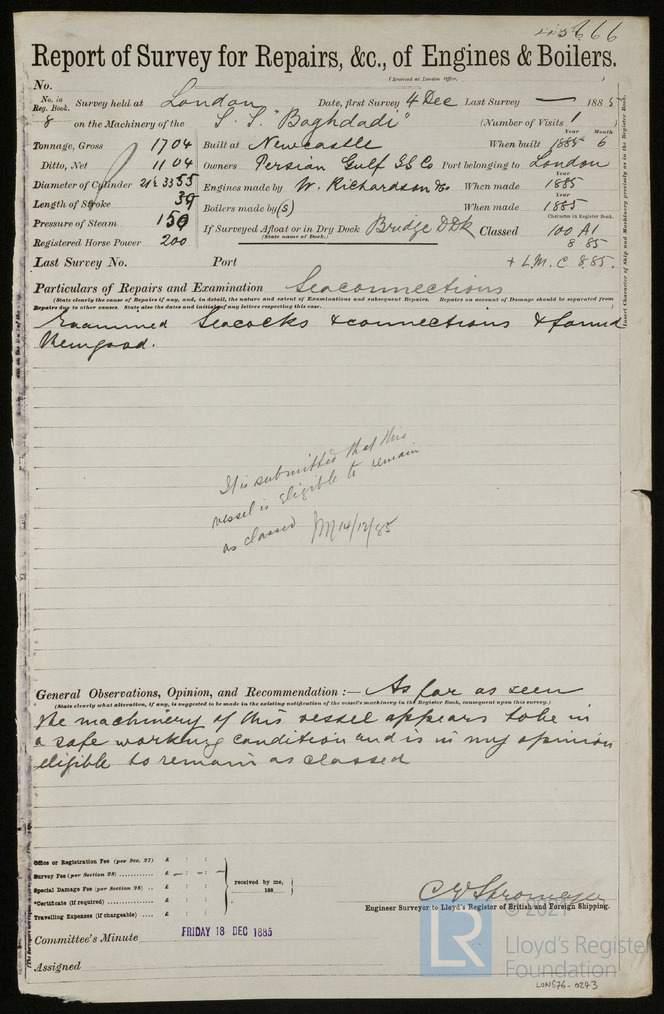 45666
Report of Survey for Repairs, &c., of Engines & Boilers.
(Received at London Office, )
No.
No. in Reg. Book. Survey held at London Date, first Survey 4 Dec Last Survey — 1885
8 on the Machinery of the S. S. "Baghdadi" (Number of Visits 1 )
Tonnage, Gross 1704 Built at Newcastle When built Year 1885 Month 6
Ditto, Net 1104 Owners Persian Gulf SS Co Port belonging to London
Diameter of Cylinder 21½ 33 55 Engines made by W. Richardson & Co When made Year 1885
Length of Stroke 39 Boilers made by (S) When made Year 1885
Pressure of Steam 150 If Surveyed Afloat or in Dry Dock Bridge D Dk Classed Character in Register Book. 100 A1
(State name of Dock.)
Registered Horse Power 200 8 85
Last Survey No. Port + L.M.C 8.85.
Insert Character of Ship and Machinery precisely as in the Register Book.
Particulars of Repairs and Examination Seaconnections
(State clearly the cause of Repairs if any, and, in detail, the nature and extent of Examinations and subsequent Repairs. Repairs on account of Damage should be separated from
Repairs due to other causes. State also the dates and initials of any letters respecting this case.)
Examined Seacocks & connections & found
them good.
It is submitted that this
vessel is eligible to remain
as classed 14/12/85
General Observations, Opinion, and Recommendation :— As far as seen
(State clearly what alteration, if any, is suggested to be made in the existing notification of the vessel's machinery in the Register Book, consequent upon this survey.)
the machinery of this vessel appears to be in
a safe working condition and is in my opinion
eligible to remain as classed
Office or Registration Fee (per Sec. 27) £ : :
Survey Fee (per Section 28) £ — : — :
Special Damage Fee (per Section 28) £ : :
*Certificate (if required) £ : :
Travelling Expenses (if chargeable) £ : :
received by me,
188
C E Stromeyer
Engineer Surveyor to Lloyd's Register of British and Foreign Shipping.
Committee's Minute FRIDAY 18 DEC 1885
Assigned
© 2021
LR
Lloyd's Register
Foundation
LON576-0243